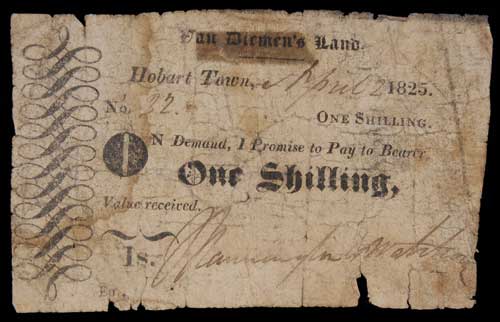 Van Diemen's Land.
Hobart Town, April 2 1825.
No. 22. ONE SHILLING.
ON Demand, I Promise to Pay to Bearer
One Shilling,
Value received.
1s.